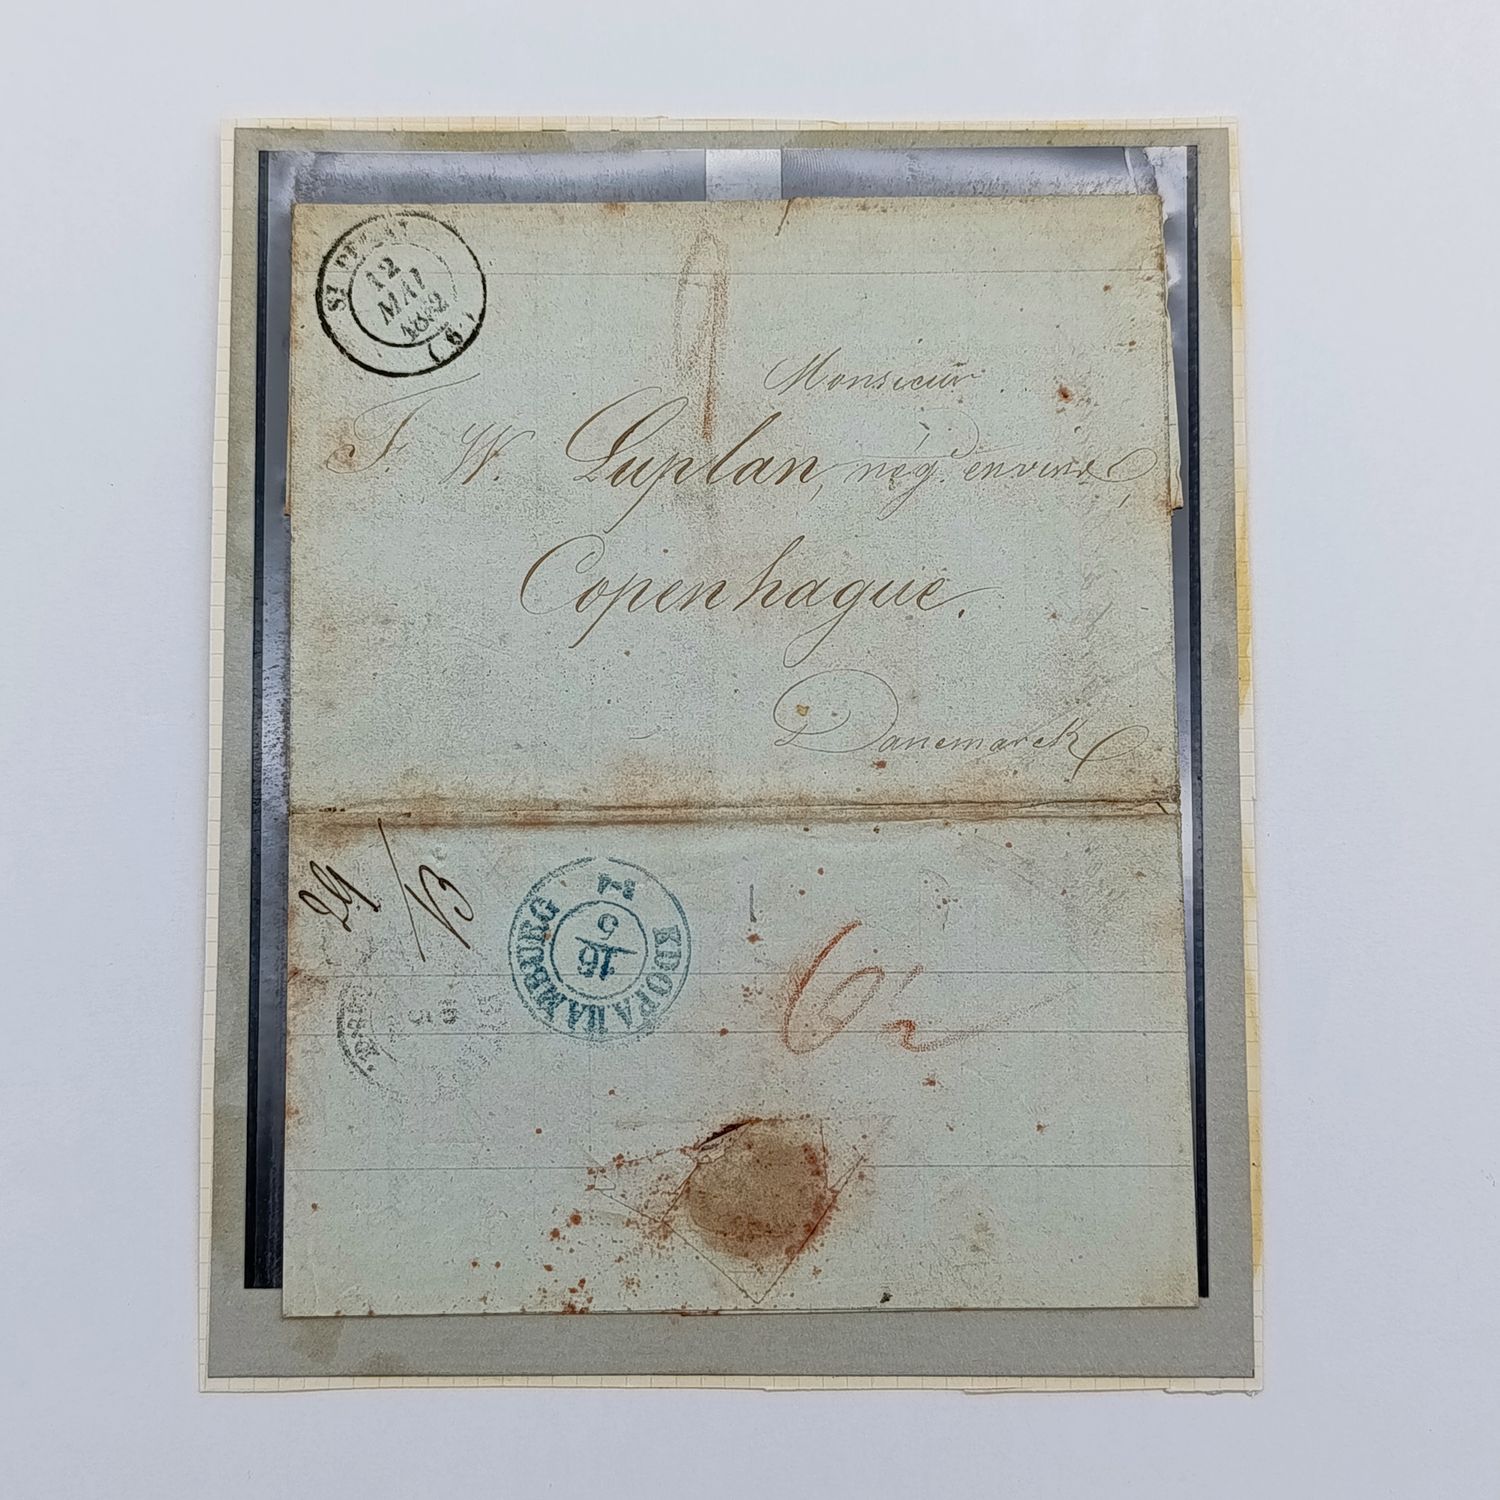 ST PERAY
12
MAI
1842
(6)
Monsieur
F. W. Luplan, nég.t en vins,
Copenhague.
Danemarck
29/13
K.D.O.P.A. HAMBURG
16/5
6½